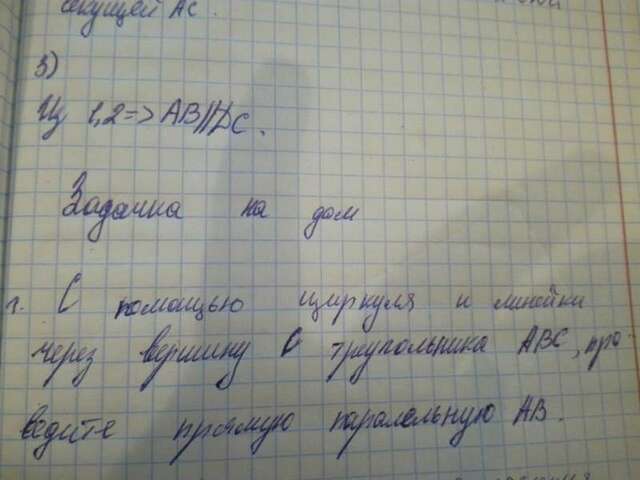 секущей AC.
3)
Из 1,2=> AB||DC.
Задачка на дом
1. С помощью циркуля и линейки
через вершину C треугольника ABC, про
ведите прямую паралельную AB.